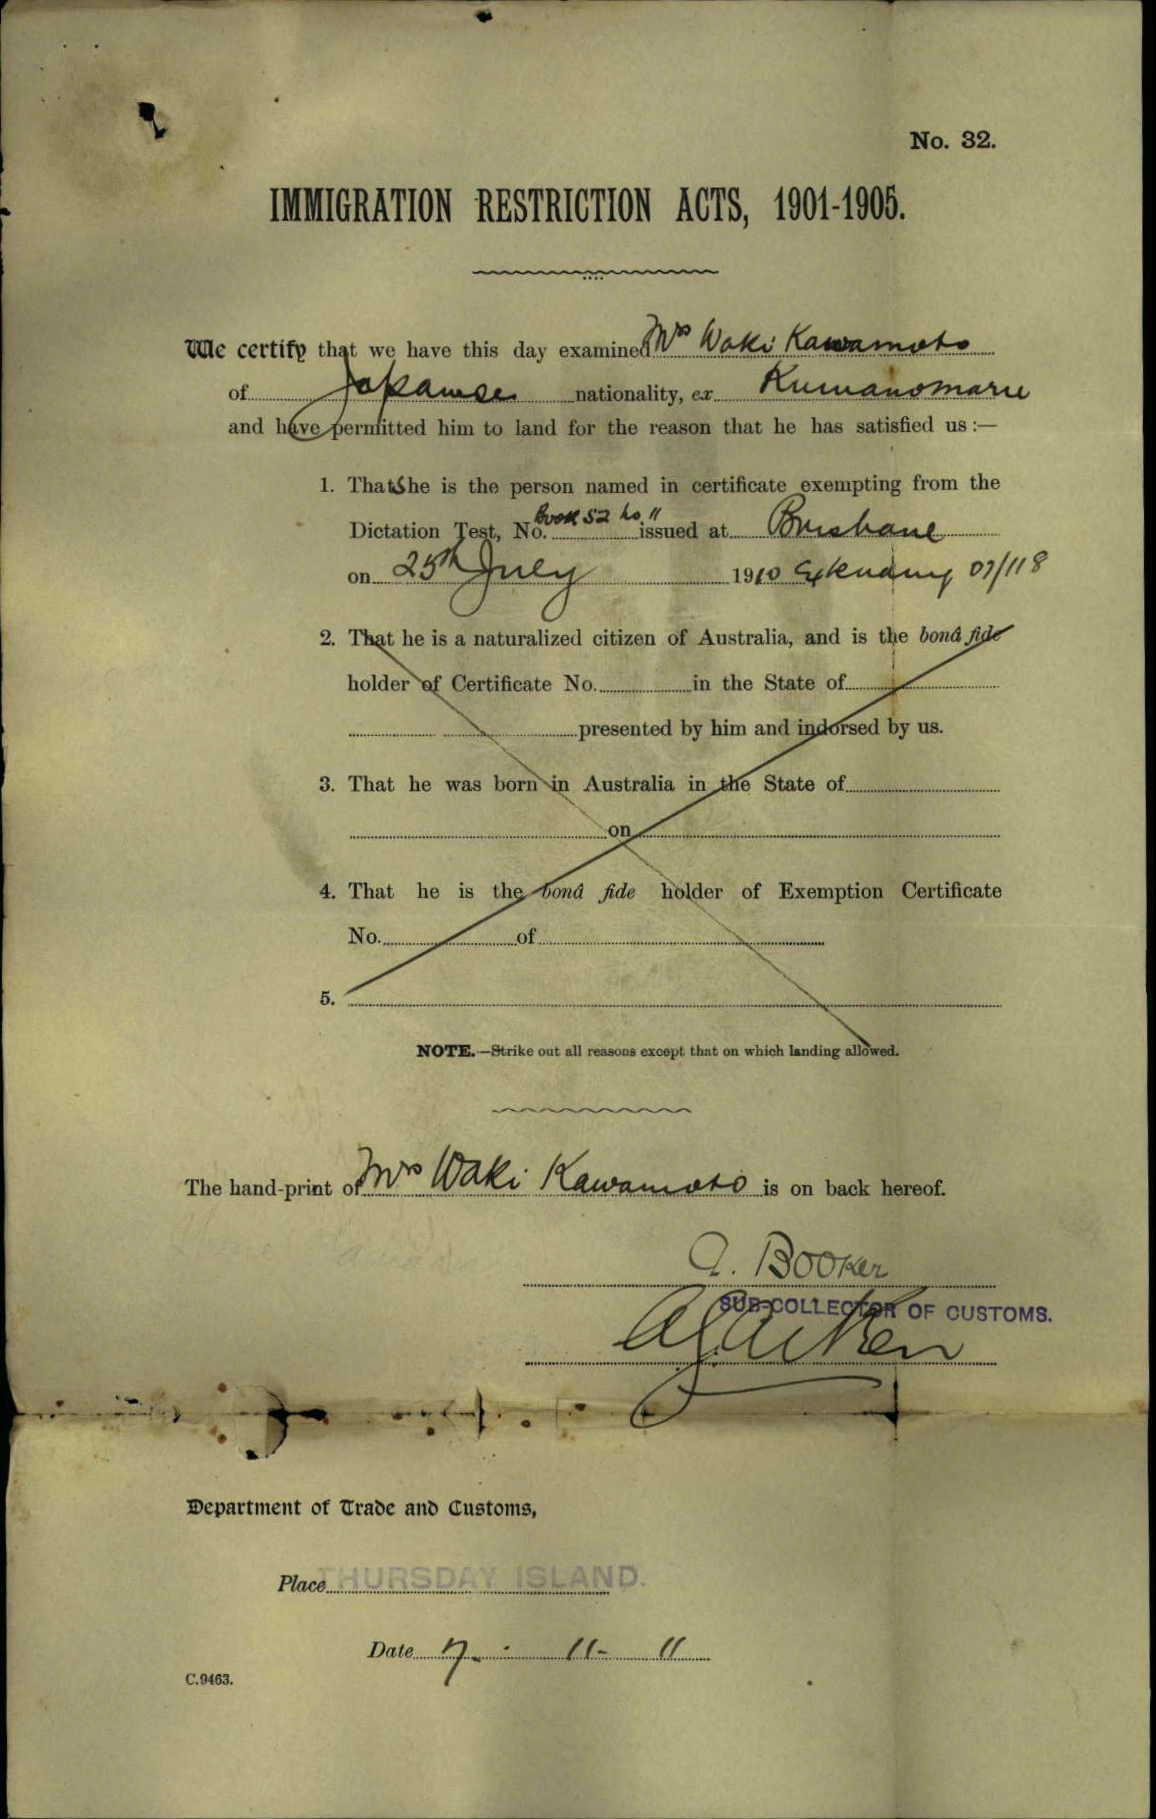 No. 32.
IMMIGRATION RESTRICTION ACTS, 1901-1905.
We certify that we have this day examined Mrs Waki Kawamoto
of Japanese nationality, ex Kumanomaru
and have permitted him to land for the reason that he has satisfied us :—
1. That She is the person named in certificate exempting from the
Dictation Test, No. Book 52 No 11 issued at Brisbane
on 25th July 1910 07/118
2. That he is a naturalized citizen of Australia, and is the bonâ fide
holder of Certificate No. in the State of
presented by him and indorsed by us.
3. That he was born in Australia in the State of
on
4. That he is the bonâ fide holder of Exemption Certificate
No. of
5.
NOTE.—Strike out all reasons except that on which landing allowed.
The hand-print of Mrs Waki Kawamoto is on back hereof.
A. Booker
SUB-COLLECTOR OF CUSTOMS.
AGAitken
Department of Trade and Customs,
Place THURSDAY ISLAND.
Date 7. - 11 - 11
C.9463.